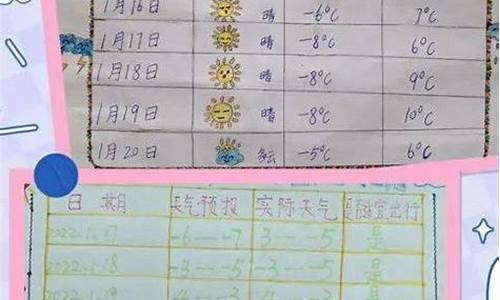 1月16日 晴 -6℃ 7℃
1月17日 晴 -8℃ 6℃
1月18日 晴 -8℃ 9℃
1月19日 晴 -8℃ 10℃
1月20日 多云 -5℃ 6℃
日期 天气预报 实际天气 是否适宜出行
2022.1.17 -6——7 3——5 是
2022.1.18 -3——5 -3——5 是
2022.1.19